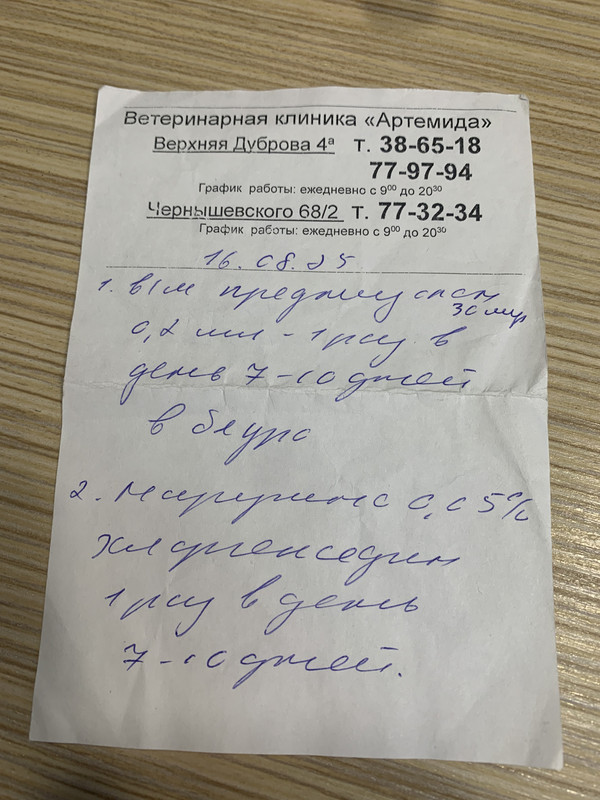 Ветеринарная клиника «Артемида»
Верхняя Дуброва 4ᵃ т. 38-65-18
77-97-94
График работы: ежедневно с 9⁰⁰ до 20³⁰
Чернышевского 68/2 т. 77-32-34
График работы: ежедневно с 9⁰⁰ до 20³⁰
16.08.25
1. в/м
30 мг
0,2 мл - 1 раз в
день 7-10 дней
в бедро
2. 0,05%
хлоргексидин
1 раз в день
7-10 дней.